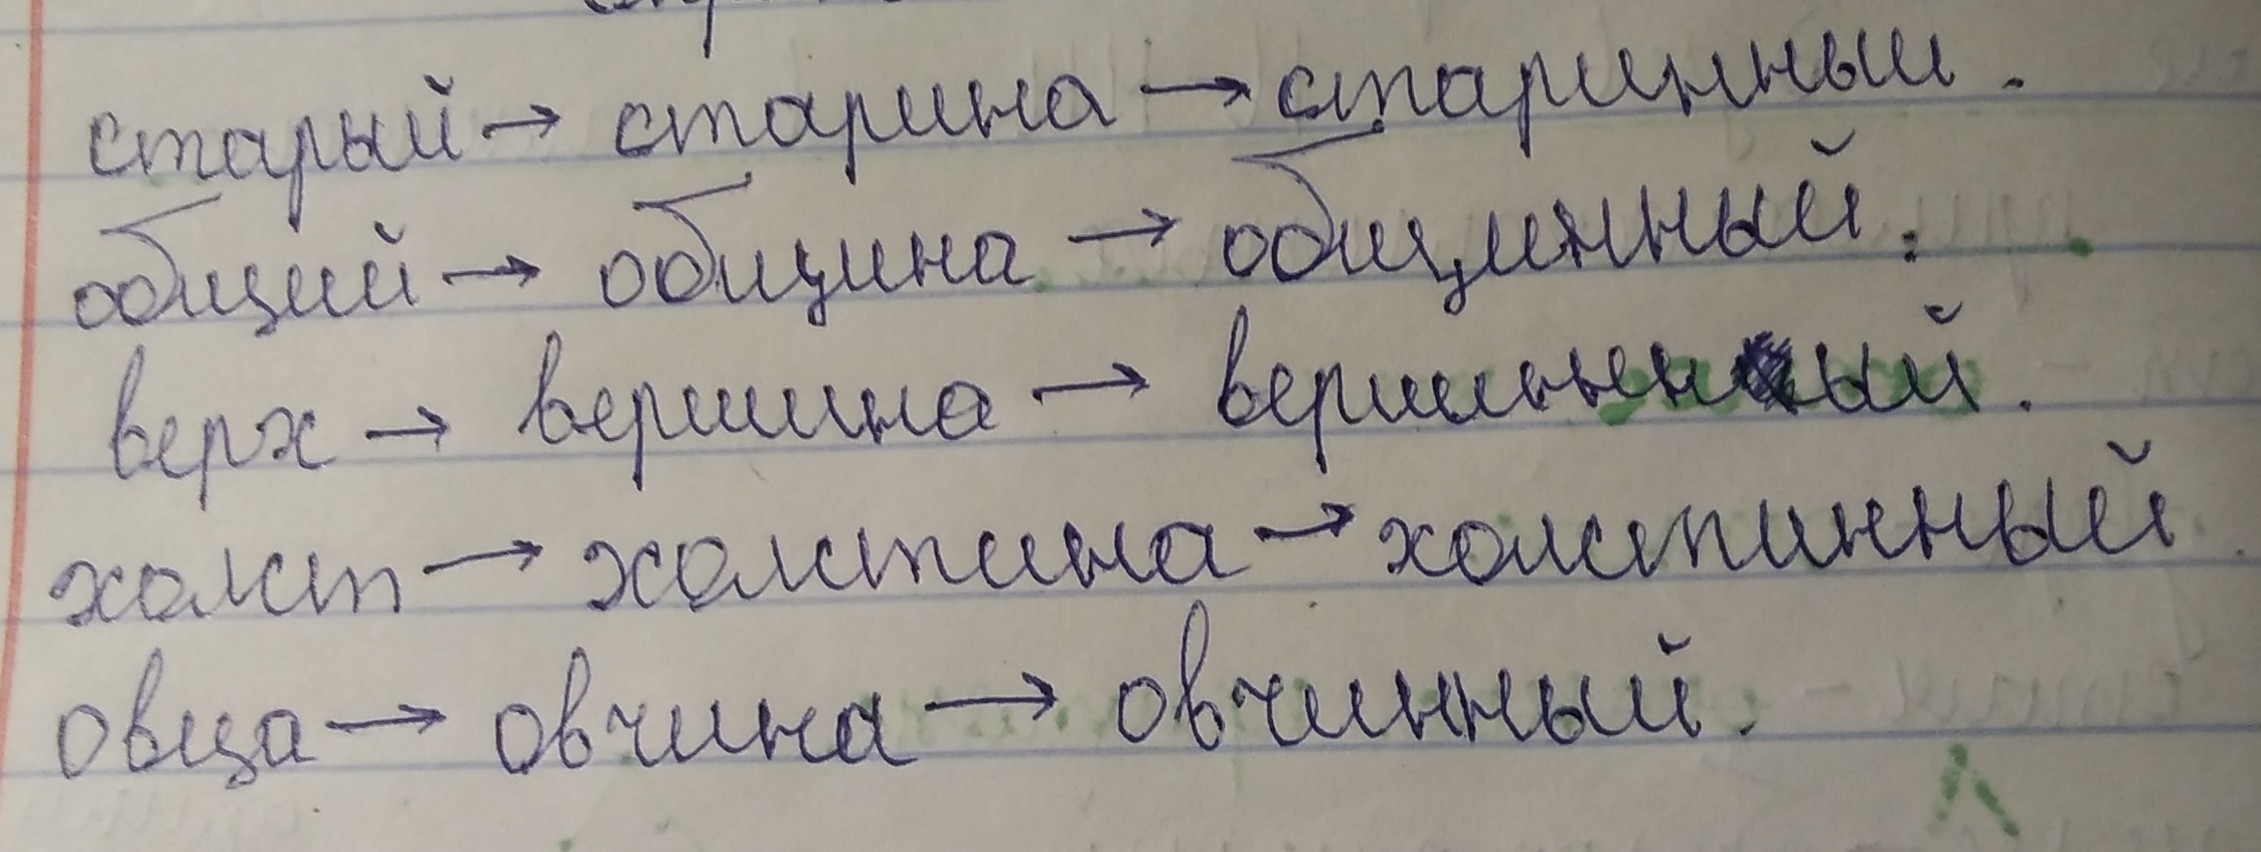 старый → старина → старинный.
общий → община → общинный.
верх → вершина → вершинный.
холст → холстина → холстинный
овца → овчина → овчинный.